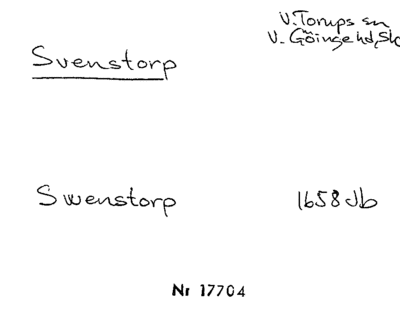 V. Torups sn
Svenstorp
V. Göinge hd, Sk
Swenstorp
1658 Jb
Nr 17704